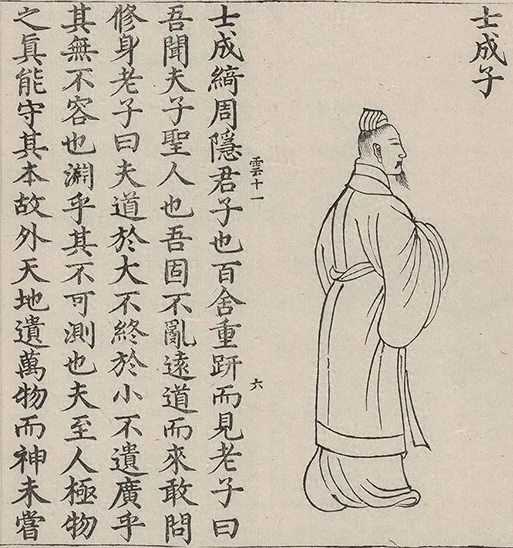 士成子
雲十一
六
士成綺周隱君子也百舍重趼而見老子曰
吾聞夫子聖人也吾固不亂遠道而來敢問
修身老子曰夫道於大不終於小不遺廣乎
其無不容也淵乎其不可測也夫至人極物
之眞能守其本故外天地遺萬物而神未嘗